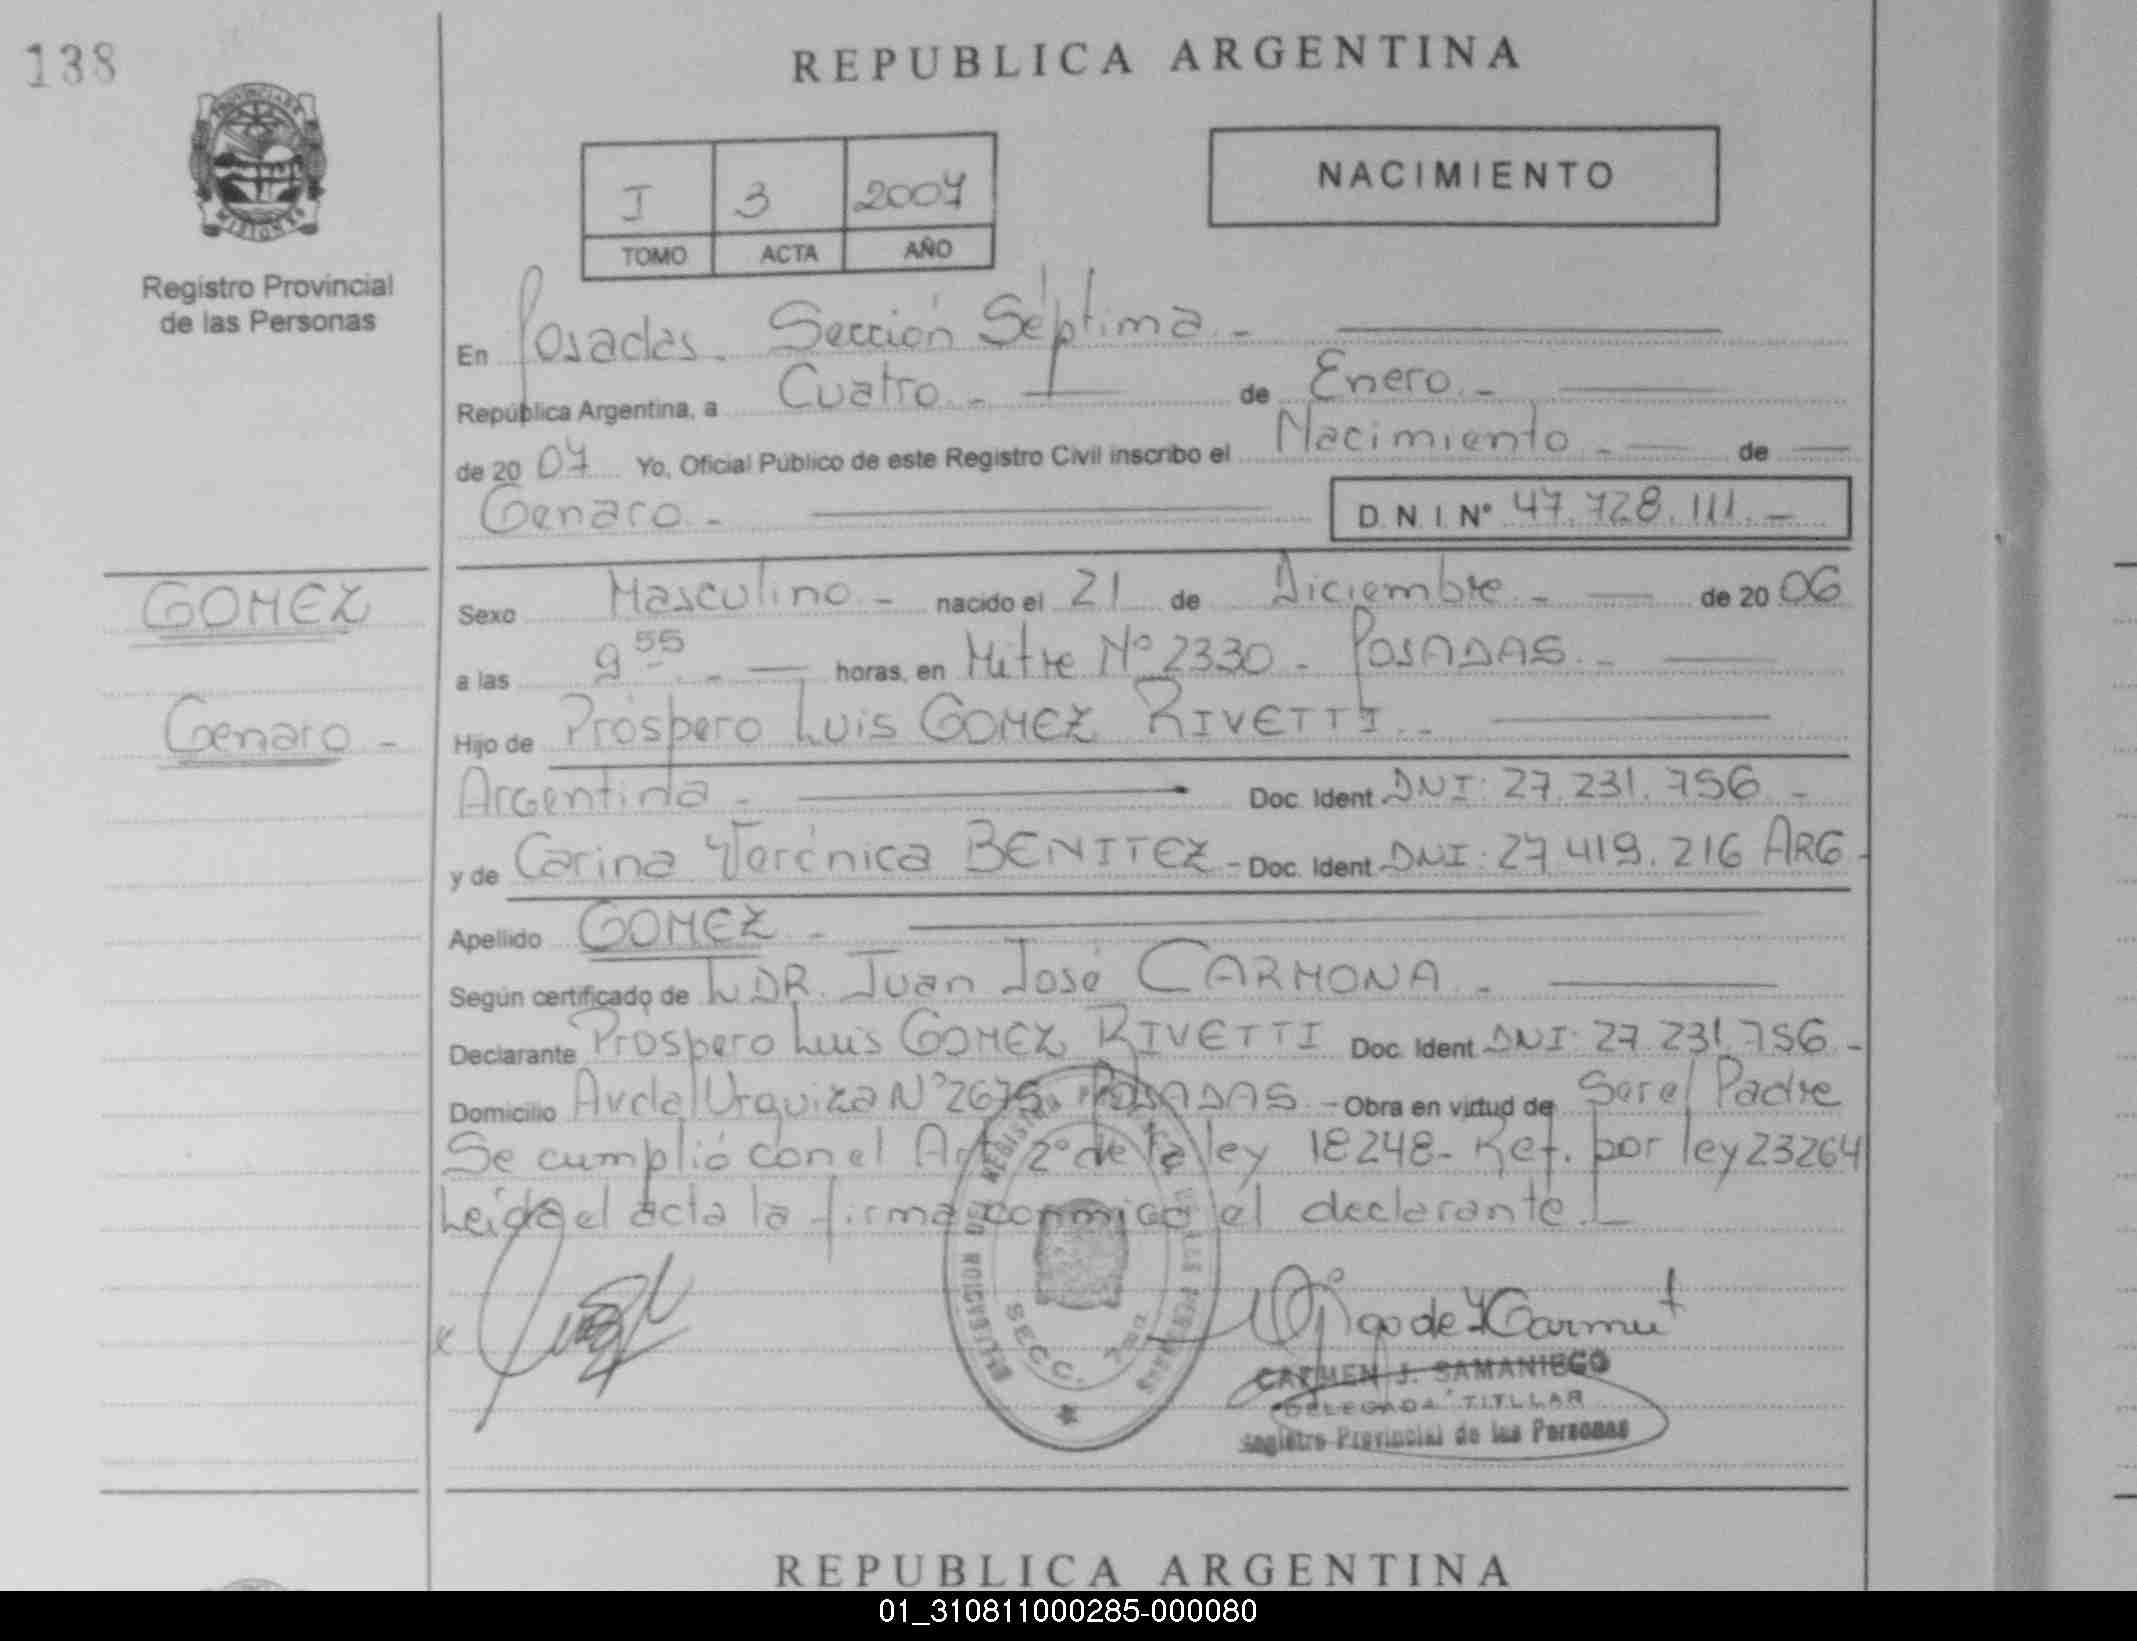 138
REPUBLICA ARGENTINA
NACIMIENTO
I 3 2007
TOMO ACTA AÑO
PROVINCIA DE
MISIONES
Registro Provincial
de las Personas
En Posadas. Sección Séptima.-
República Argentina, a Cuatro.- de Enero.-
de 2007 Yo, Oficial Público de este Registro Civil inscribo el Nacimiento.- de
Genaro.- D.N.I. Nº 47.728.111.-
GOMEZ
Genaro.-
Sexo Masculino.- nacido el 21 de Diciembre.- de 2006
a las 9 55.- horas, en Mitre Nº 2330.- POSADAS.-
Hijo de Próspero Luis GOMEZ RIVETTI.-
Argentina.- Doc. Ident. DNI: 27.231.756.-
y de Carina Verónica BENITEZ.- Doc. Ident. DNI: 27.419.216 ARG.-
Apellido GOMEZ.-
Según certificado de L DR. Juan José CARMONA.-
Declarante Próspero Luis GOMEZ RIVETTI Doc. Ident. DNI: 27.231.756.-
Domicilio Avda Urquiza Nº 2675. POSADAS.- Obra en virtud de Ser el Padre
Se cumplió con el Art 2º de la ley 18248- Ref. por ley 23264
Leída el acta la firma conmigo el declarante.
DELEGACION DEL REGISTRO
SECC. 7ma
CARMEN J. SAMANIEGO
DELEGADA TITULAR
Registro Provincial de las Personas
REPUBLICA ARGENTINA
01_310811000285-000080